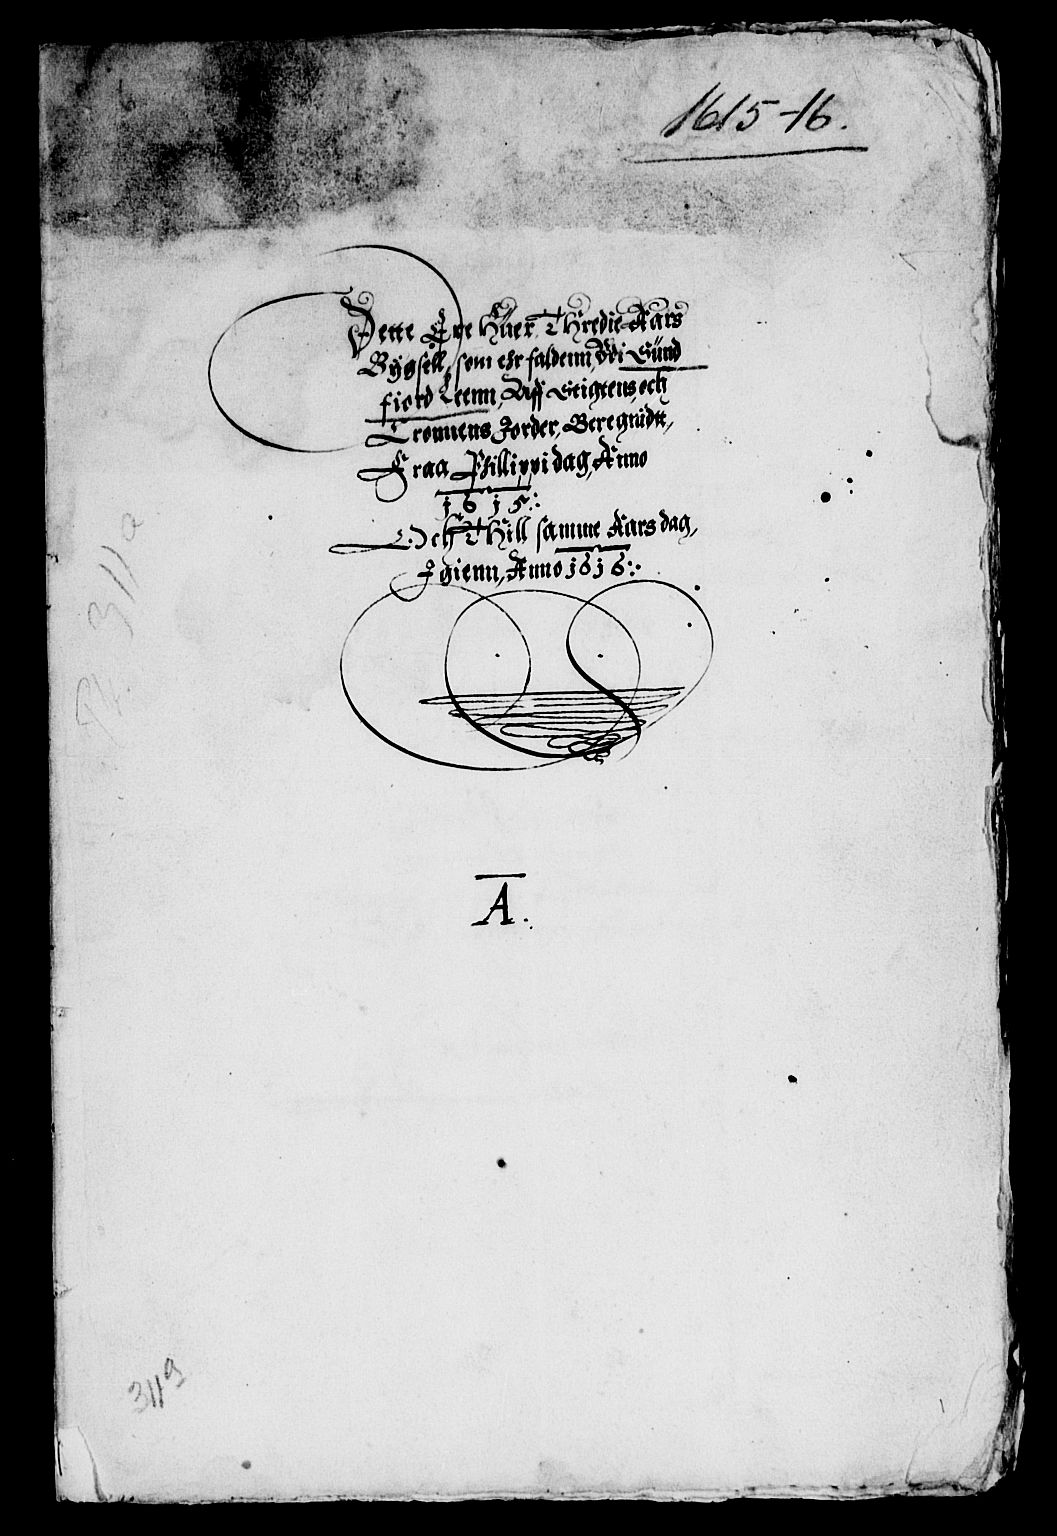 1615-16.
Dette Ere Huer Thredie Aars
Bygsell, som ehr faldenn, Vdi Sünd
fiord Leenn, Aff Stigtens, och
Cronnens Jorder, Beregnidtt,
Fraa Phillippi dag, Anno
1615
Och Thill samme Aars dag,
Igienn, Anno 1616
A.
311a